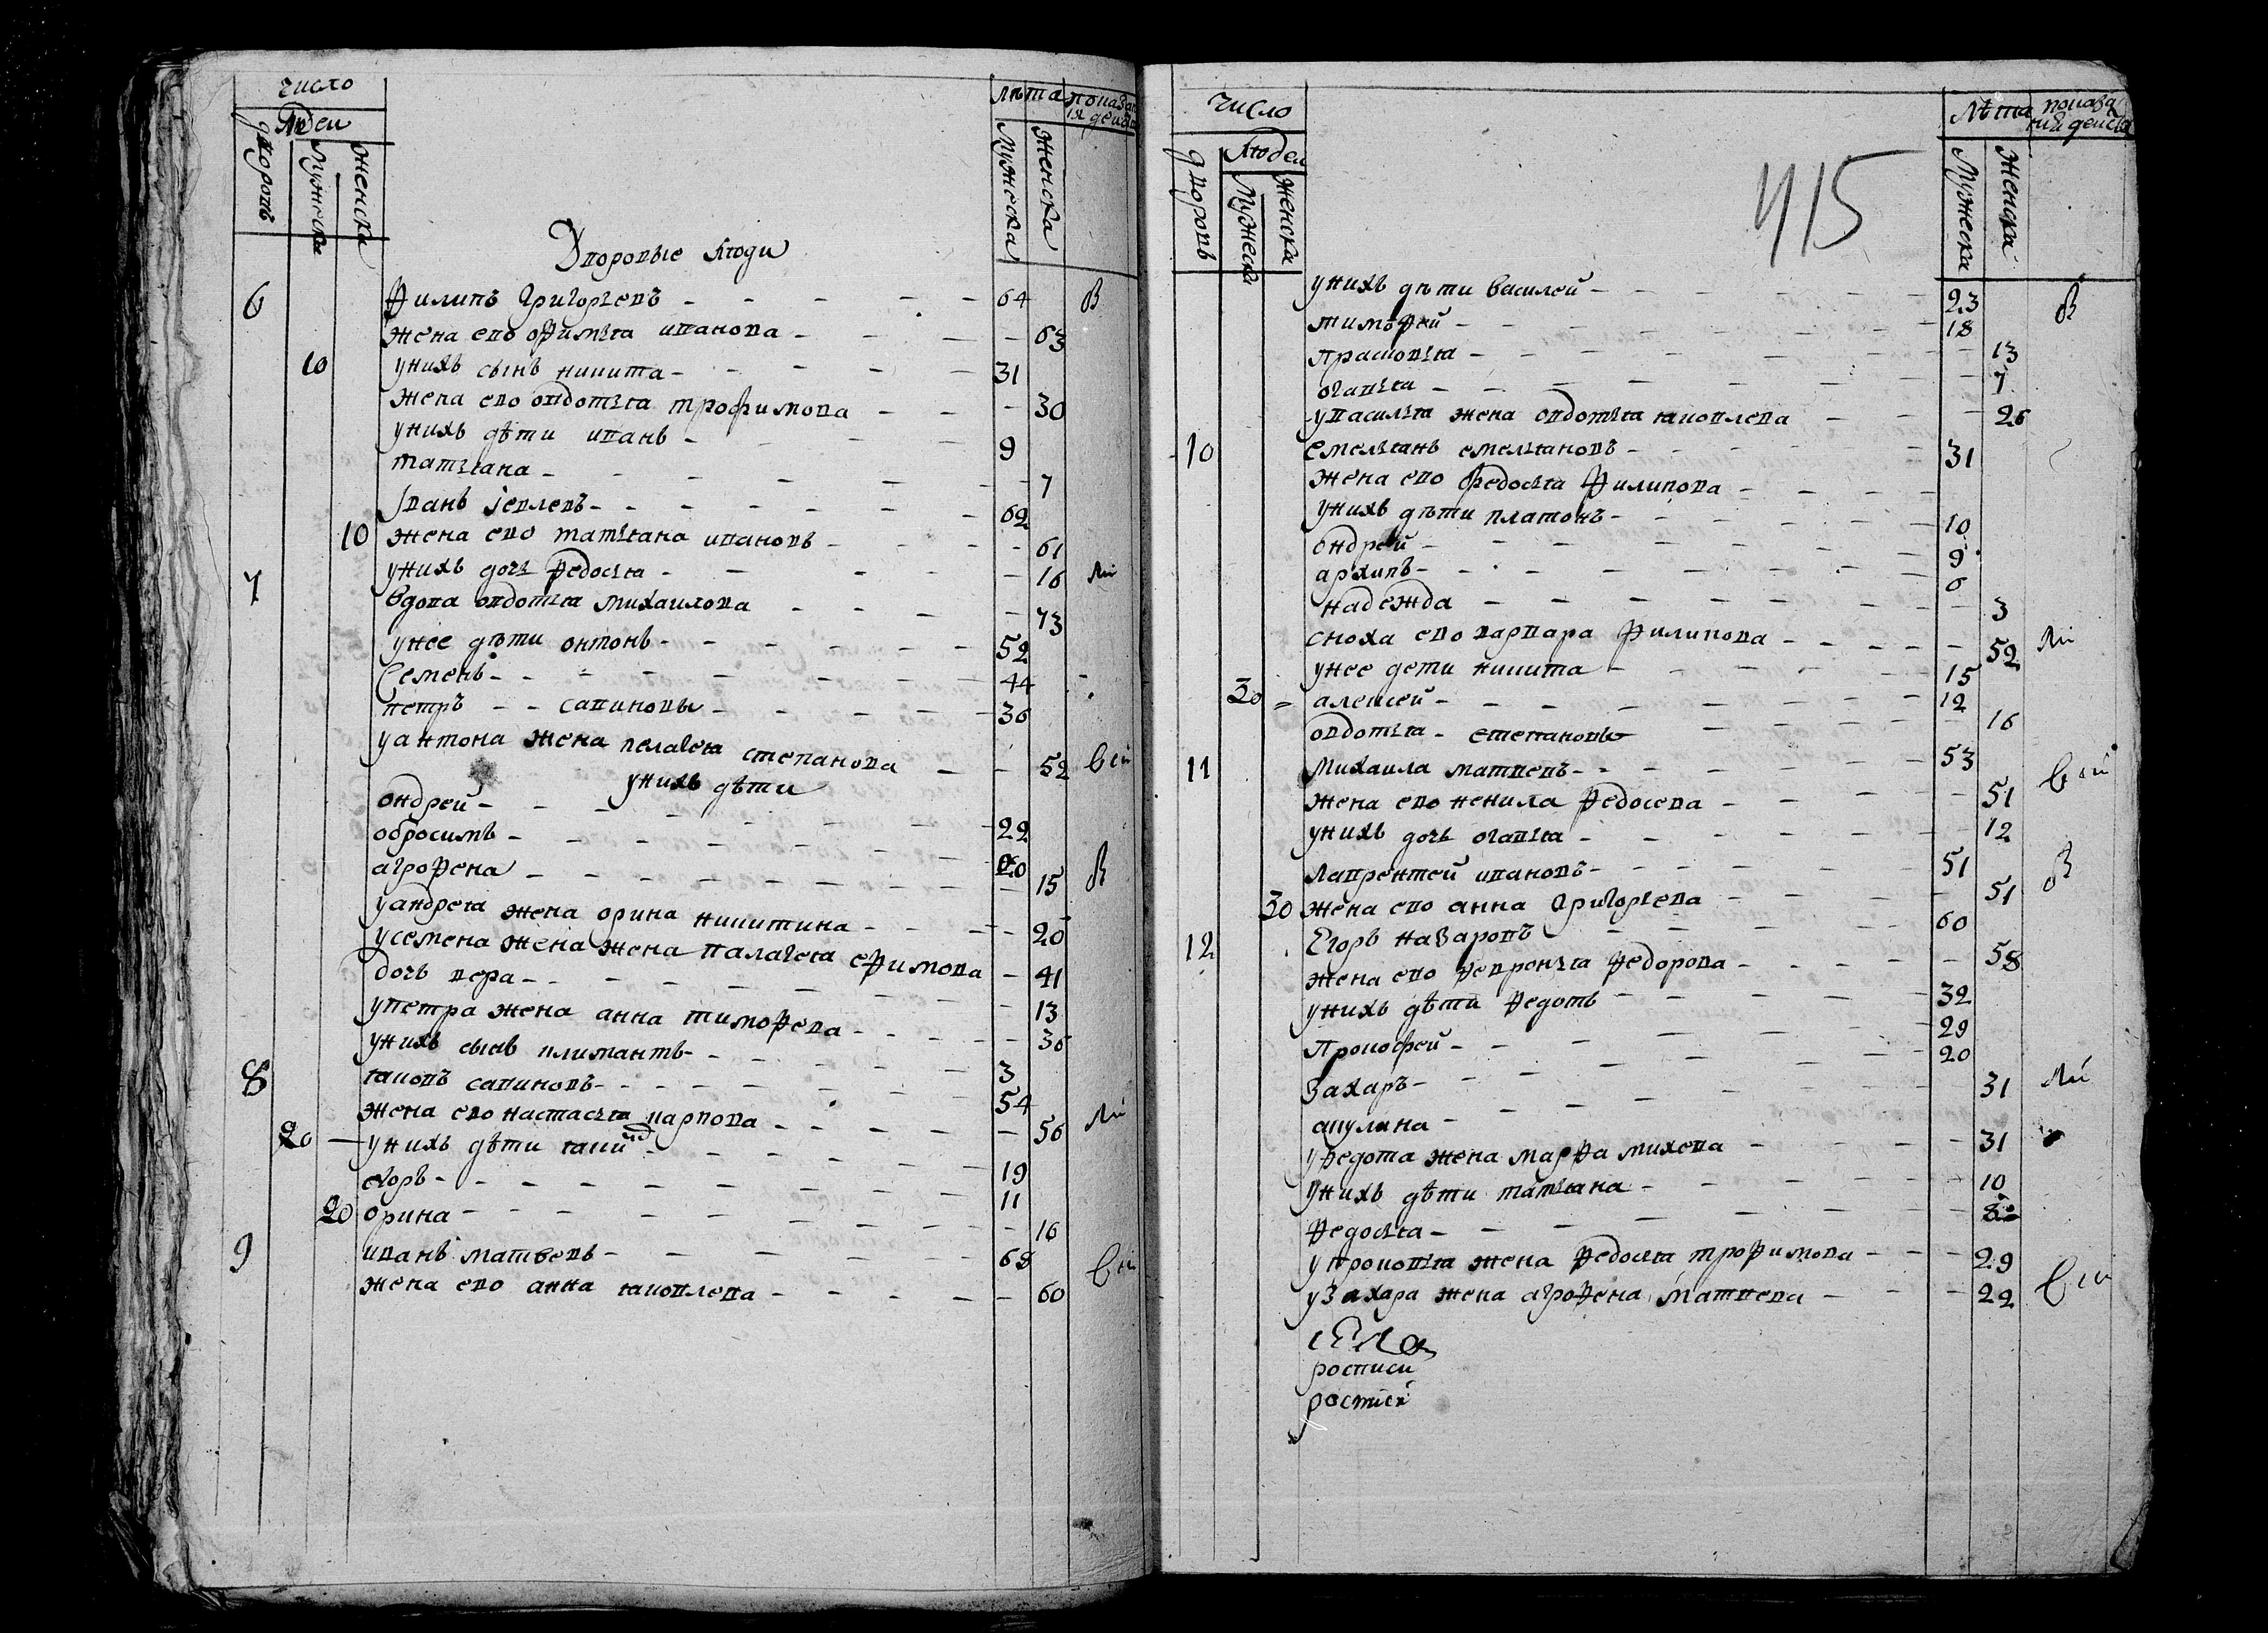 число
людеи
дворовъ
мужеска
женска
лѣта
мужеска
женска
Дворовые люди
6 Филипъ григорьевъ 64 В
жена ево офимья иванова 63
10 унихъ сынъ никита 31
жена ево овдотья трофимова 30
унихъ дѣти иванъ 9
татьяна 7
Иванъ іевлевъ 62
10 жена ево татьяна ивановъ 61
унихъ дочь федосья 16
7 вдова овдотья михаилова 73
унее дѣти онтонъ 52
Семенъ 44
петръ савиновы 36
уантона жена пелагея степанова 52
унихъ дѣти
ондреи 22
обросимъ 20
агрофена 15 В
уандрея жена орина никитина 20
усемена жена жена палагея ефимова 41
дочь вера 13
упетра жена анна тимофева 36
унихъ сынъ климантъ 3
8 яковъ савиновъ 54
жена ево настасья карпова 56
20 унихъ дѣти
егоръ 19
11
20 орина 16
9 иванъ матвевъ 68
жена ево анна яковлева 60
415
число
людеи
дворовъ
мужеска
женска
Лѣта
мужеска
женска
унихъ дѣти василей 23 В
тимофей 18
прасковья 13
огафья 7
увасилья жена овдотья яковлева 26
10 емельянъ емельяновъ 31
жена ево федосья филипова
унихъ дѣти платонъ 10
ондрей 9
архипъ 6
надежда 3
сноха ево варвара филипова 52
унее дети никита 15
30 алексей 12
овдотья степановы 16
11 михаила матвевъ 53
жена ево ненила федосева 51
унихъ дочь огафья 12
лаврентей ивановъ 51 В
30 жена ево анна григорьева 51
12 Егоръ назаровъ 60
жена ево февронья федорова 58
унихъ дѣти федотъ 32
Прокофей 29
Захаръ 20
акулина 31
уфедота жена марфа михева 31
унихъ дѣти татьяна 10
федосья 8
упрокофья жена федосья трофимова 29
узахара жена агрофена матвева 22
росписи